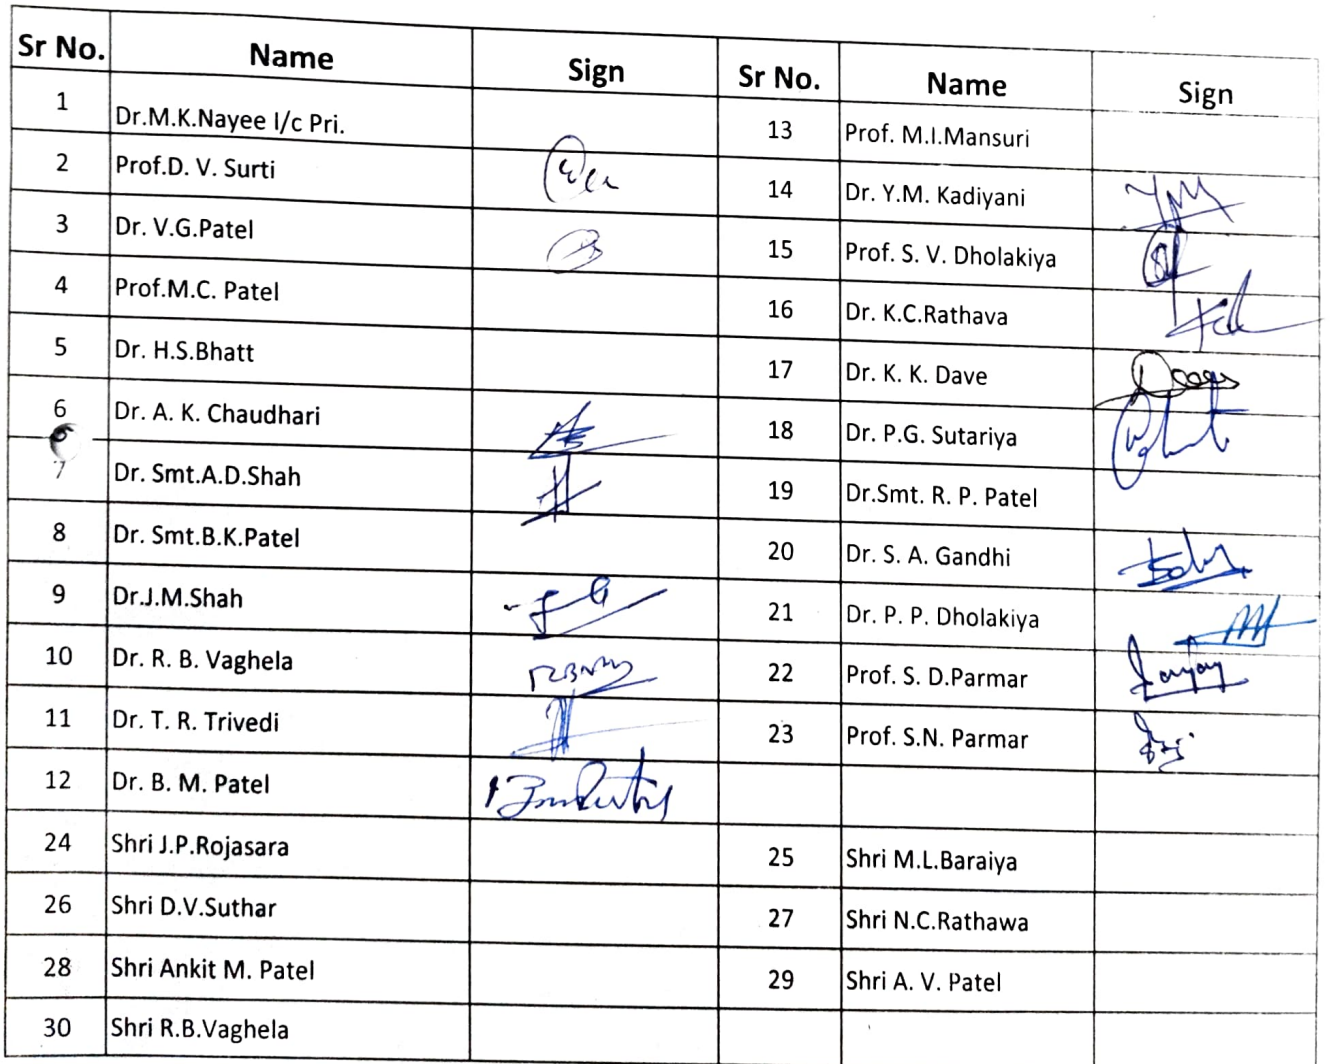 Sr No. Name Sign Sr No. Name Sign
1 Dr.M.K.Nayee I/c Pri. 13 Prof. M.I.Mansuri
2 Prof.D. V. Surti 14 Dr. Y.M. Kadiyani
3 Dr. V.G.Patel 15 Prof. S. V. Dholakiya
4 Prof.M.C. Patel 16 Dr. K.C.Rathava
5 Dr. H.S.Bhatt 17 Dr. K. K. Dave
6 Dr. A. K. Chaudhari 18 Dr. P.G. Sutariya
7 Dr. Smt.A.D.Shah 19 Dr.Smt. R. P. Patel
8 Dr. Smt.B.K.Patel 20 Dr. S. A. Gandhi
9 Dr.J.M.Shah 21 Dr. P. P. Dholakiya
10 Dr. R. B. Vaghela 22 Prof. S. D.Parmar
11 Dr. T. R. Trivedi 23 Prof. S.N. Parmar
12 Dr. B. M. Patel
24 Shri J.P.Rojasara 25 Shri M.L.Baraiya
26 Shri D.V.Suthar 27 Shri N.C.Rathawa
28 Shri Ankit M. Patel 29 Shri A. V. Patel
30 Shri R.B.Vaghela